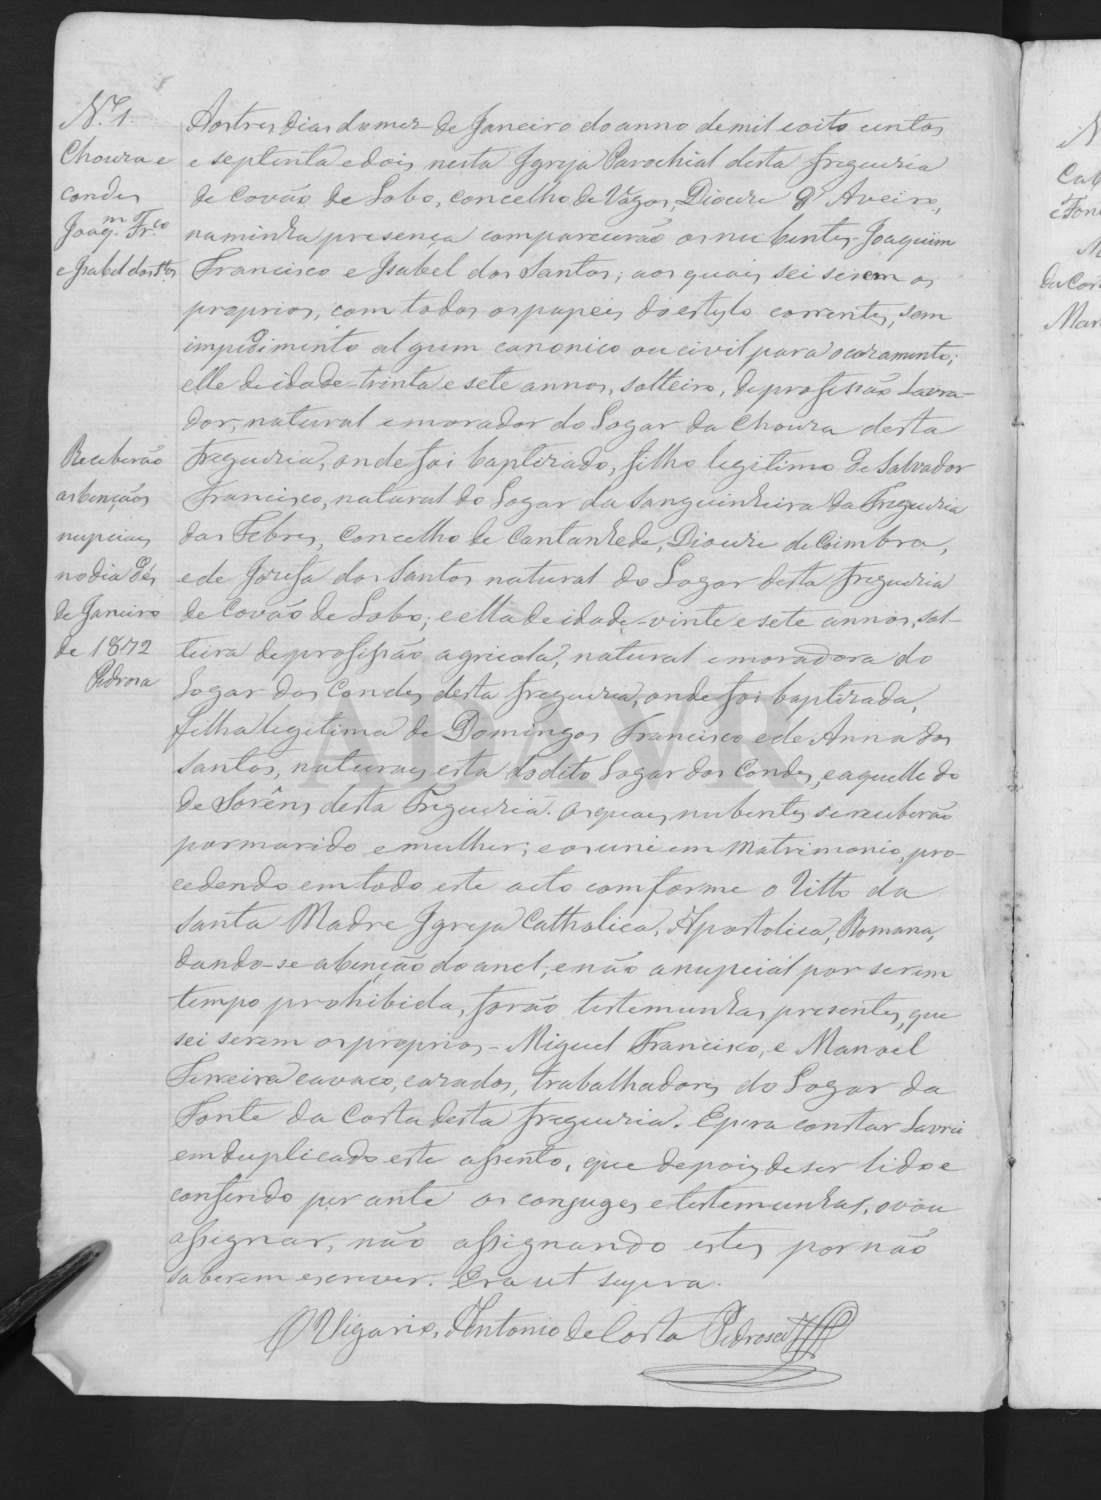 N.º 1
Choura e
condes
Joaq.m Fr.co
e Isabel dos S.tos
Receberão
as bençãos
nupciaes
no dia des
de Janeiro
de 1872
Pedrosa
Aos tres dias do mez de Janeiro do anno de mil e oito centos
e septenta e dois nesta Igreja Parochial desta freguezia
de Covão de Lobo, concelho de Vagos, Diocese d'Aveiro,
na minha presença comparecerão os nubentes Joaquim
Francisco e Isabel dos Santos; aos quaes sei serem os
proprios, com todos os papeis do estylo correntes, sem
impedimento algum canonico ou civil para o cazamento;
elle de idade trinta e sete annos, solteiro, de profissão Lavra-
dor, natural e morador do Logar da Choura desta
freguezia, onde foi baptizado, filho legitimo de Salvador
Francisco, natural do Logar da Sanguinheira da Freguezia
das Febres, Concelho de Cantanhede, Diocese de Coimbra,
e de Josefa dos Santos natural do Logar desta freguezia
de Covão de Lobo; e ella de idade vinte e sete annos, sol-
teira de profissão agricola, natural e moradora do
Logar dos Condes desta freguezia, onde foi baptizada,
filha legitima de Domingos Francisco e de Anna dos
Santos, naturaes esta do dito Logar dos Condes, e aquelle do
de Sorêns desta Freguezia. Os quaes nubentes se receberão
por marido e mulher; e os uni em Matrimonio, pro-
cedendo em todo este acto comforme o Ritto da
Santa Madre Igreja Catholica, Apostolica, Romana,
dando-se a benção do anel, e não a nupcial por serem
tempo prohibido, forão testemunhas presentes, que
sei serem os proprios - Miguel Francisco, e Manoel
Ferreira cavaco, cazados, trabalhadores do Logar da
Fonte da Costa desta freguezia. E para constar Lavrei
em duplicado este assento, que depois de ser lido e
conferido perante os conjuges e testemunhas, o vou
assignar, não assignando estes por não
saberem escrever. Era ut supra.
O Vigario, Antonio da Costa Pedrosa
ADAVR